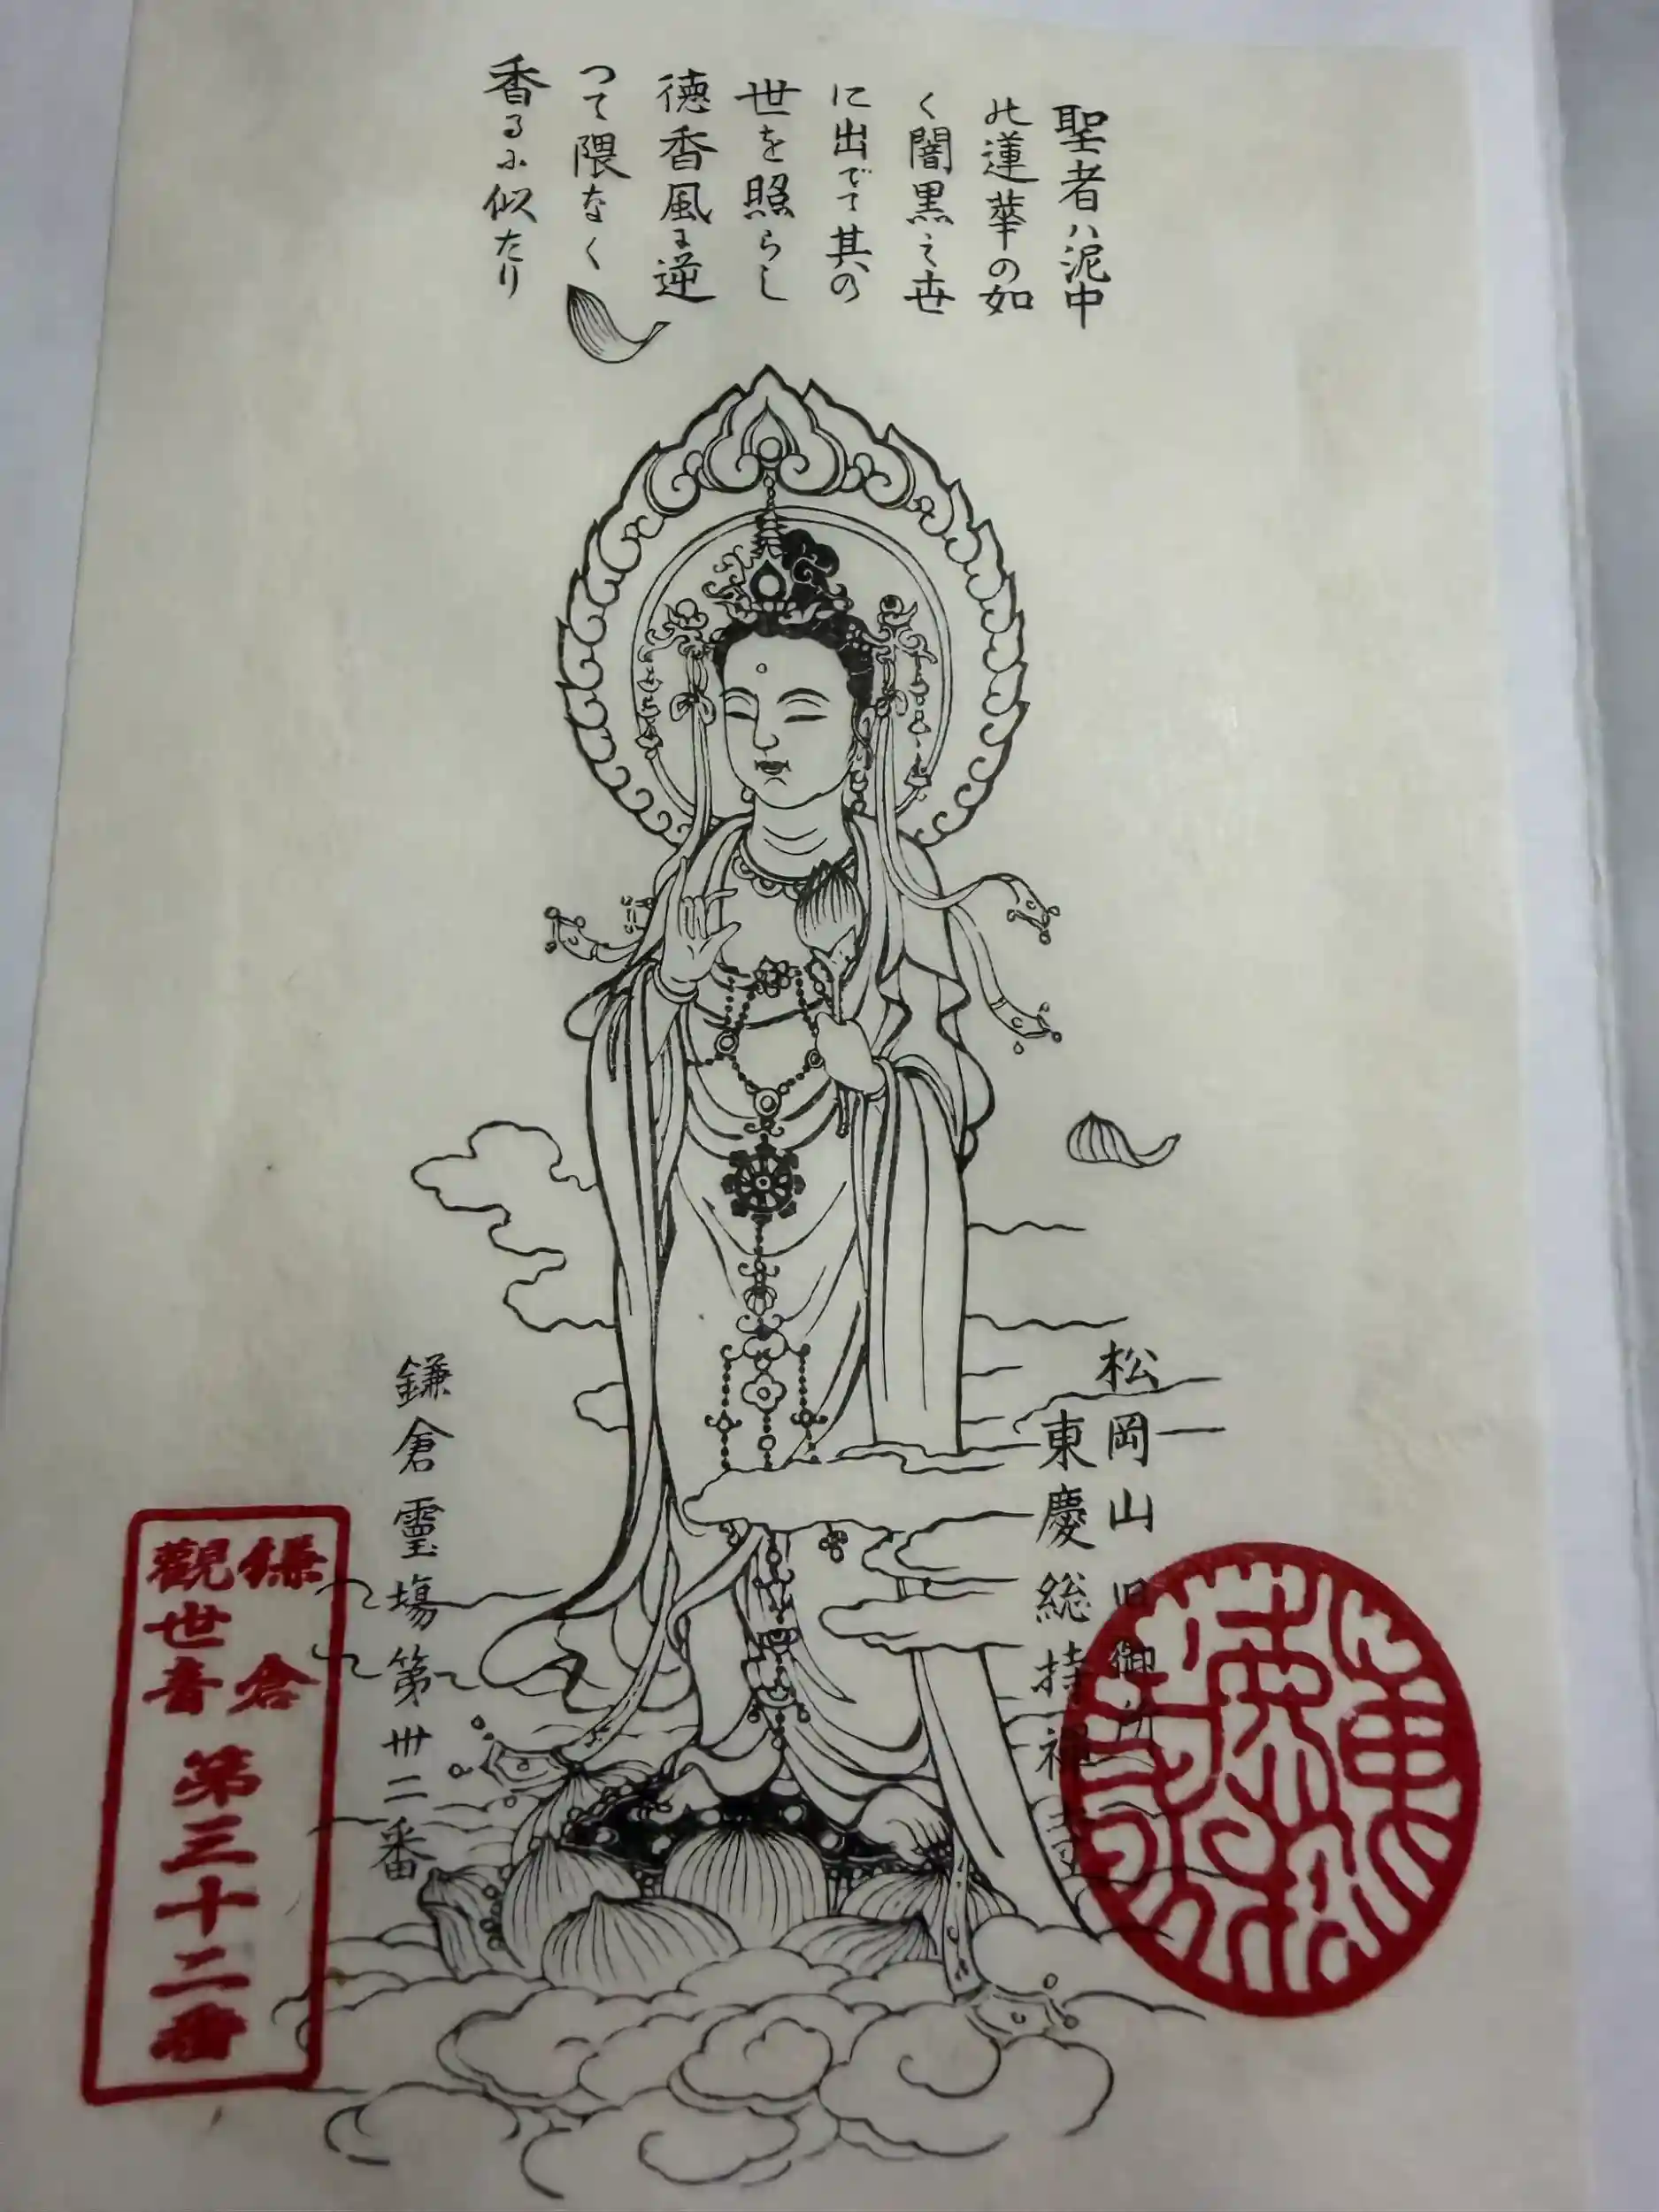 聖者ハ泥中
の蓮華の如
く闇黒之世
に出でて其の
世を照らし
徳香風に逆
つて隈なく
香るに似たり
松岡山 旧御所
東慶総持禅寺
鎌倉靈場第卅二番
鎌倉
觀世音
第三十二番